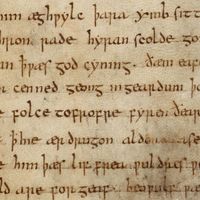 m æghƿylc þara ymb sitt
hron rade hyran scolde go
an þ ƿæs god cyning. ðæm eafe
r cenned geong in geardum þon
e folce tofrofre fyren ðear
þ hie ær drugon aldor ase
e him þæs lif frea ƿuldres ƿ
ld are for geaf. beoƿulf ƿæs